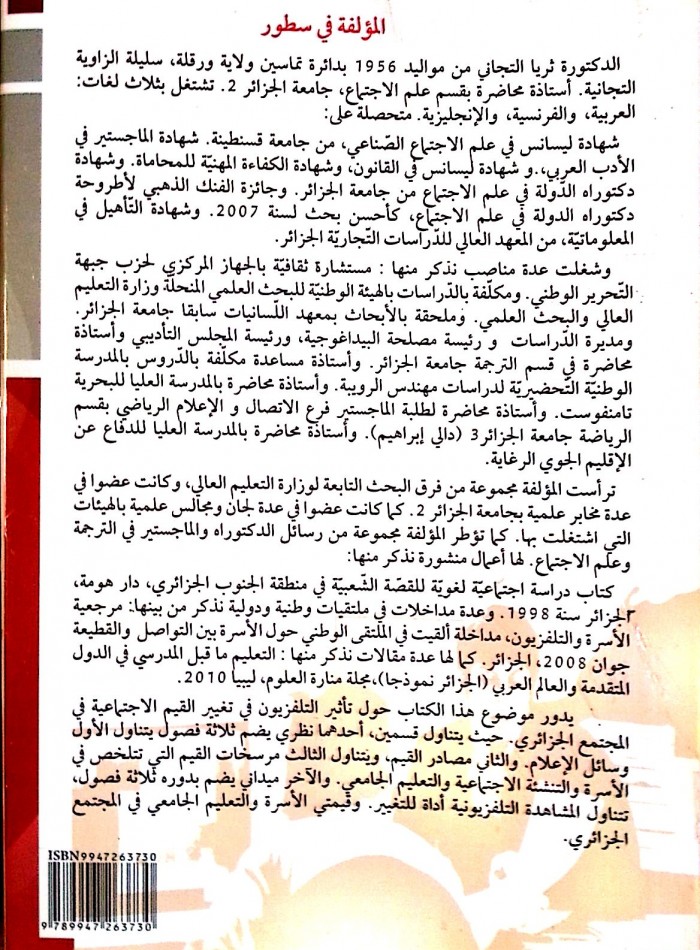 المؤلفة في سطور
الدكتورة ثريا التجاني من مواليد 1956 بدائرة تماسين ولاية ورقلة، سليلة الزاوية
التجانية. أستاذة محاضرة بقسم علم الاجتماع، جامعة الجزائر 2. تشتغل بثلاث لغات:
العربية، والفرنسية، والإنجليزية. متحصلة على:
شهادة ليسانس في علم الاجتماع الصّناعي، من جامعة قسنطينة. شهادة الماجستير في
الأدب العربي،.و شهادة ليسانس في القانون، وشهادة الكفاءة المهنيّة للمحاماة. وشهادة
دكتوراه الدّولة في علم الاجتماع من جامعة الجزائر. وجائزة الفنك الذهبي لأطروحة
دكتوراه الدولة في علم الاجتماع، كأحسن بحث لسنة 2007. وشهادة التّأهيل في
المعلوماتيّة، من المعهد العالي للدّراسات التّجاريّة الجزائر.
وشغلت عدة مناصب نذكر منها : مستشارة ثقافيّة بالجهاز المركزي لحزب جبهة
التّحرير الوطني. ومكلّفة بالدّراسات بالهيئة الوطنيّة للبحث العلمي المنحلّة وزارة التعليم
العالي والبحث العلمي. وملحقة بالأبحاث بمعهد اللّسانيات سابقا جامعة الجزائر.
ومديرة الدّراسات و رئيسة مصلحة البيداغوجية، ورئيسة المجلس التأديبي وأستاذة
محاضرة في قسم الترجمة جامعة الجزائر. وأستاذة مساعدة مكلّفة بالدّروس بالمدرسة
الوطنيّة التّحضيريّة لدراسات مهندس الرويبة. وأستاذة محاضرة بالمدرسة العليا للبحرية
تامنفوست. وأستاذة محاضرة لطلبة الماجستير فرع الاتصال و الإعلام الرياضي بقسم
الرياضة جامعة الجزائر3 (دالي إبراهيم). وأستاذة محاضرة بالمدرسة العليا للدفاع عن
الإقليم الجوي الرغاية.
ترأست المؤلفة مجموعة من فرق البحث التابعة لوزارة التعليم العالي، وكانت عضوا في
عدة مخابر علمية بجامعة الجزائر 2. كما كانت عضوا في عدة لجان ومجالس علمية بالهيئات
التي اشتغلت بها. كما تؤطر المؤلفة مجموعة من رسائل الدكتوراه والماجستير في الترجمة
وعلم الاجتماع. لها أعمال منشورة نذكر منها:
كتاب دراسة اجتماعيّة لغويّة للقصّة الشّعبيّة في منطقة الجنوب الجزائري، دار هومة،
الجزائر سنة 1998. وعدة مداخلات في ملتقيات وطنية ودولية نذكر من بينها: مرجعية
الأسرة والتلفزيون، مداخلة ألقيت في الملتقى الوطني حول الأسرة بين التواصل والقطيعة
جوان 2008، الجزائر. كما لها عدة مقالات نذكر منها : التعليم ما قبل المدرسي في الدول
المتقدمة والعالم العربي (الجزائر نموذجا)،مجلة منارة العلوم، ليبيا 2010.
يدور موضوع هذا الكتاب حول تأثير التلفزيون في تغيير القيم الاجتماعية في
المجتمع الجزائري. حيث يتناول قسمين، أحدهما نظري يضم ثلاثة فصول يتناول الأول
وسائل الإعلام. والثاني مصادر القيم، ويتناول الثالث مرسخات القيم التي تتلخص في
الأسرة والتنشئة الاجتماعية والتعليم الجامعي. والآخر ميداني يضم بدوره ثلاثة فصول،
تتناول المشاهدة التلفزيونية أداة للتغيير. وقيمتي الأسرة والتعليم الجامعي في المجتمع
الجزائري.
ISBN9947263730
9 789947 263730